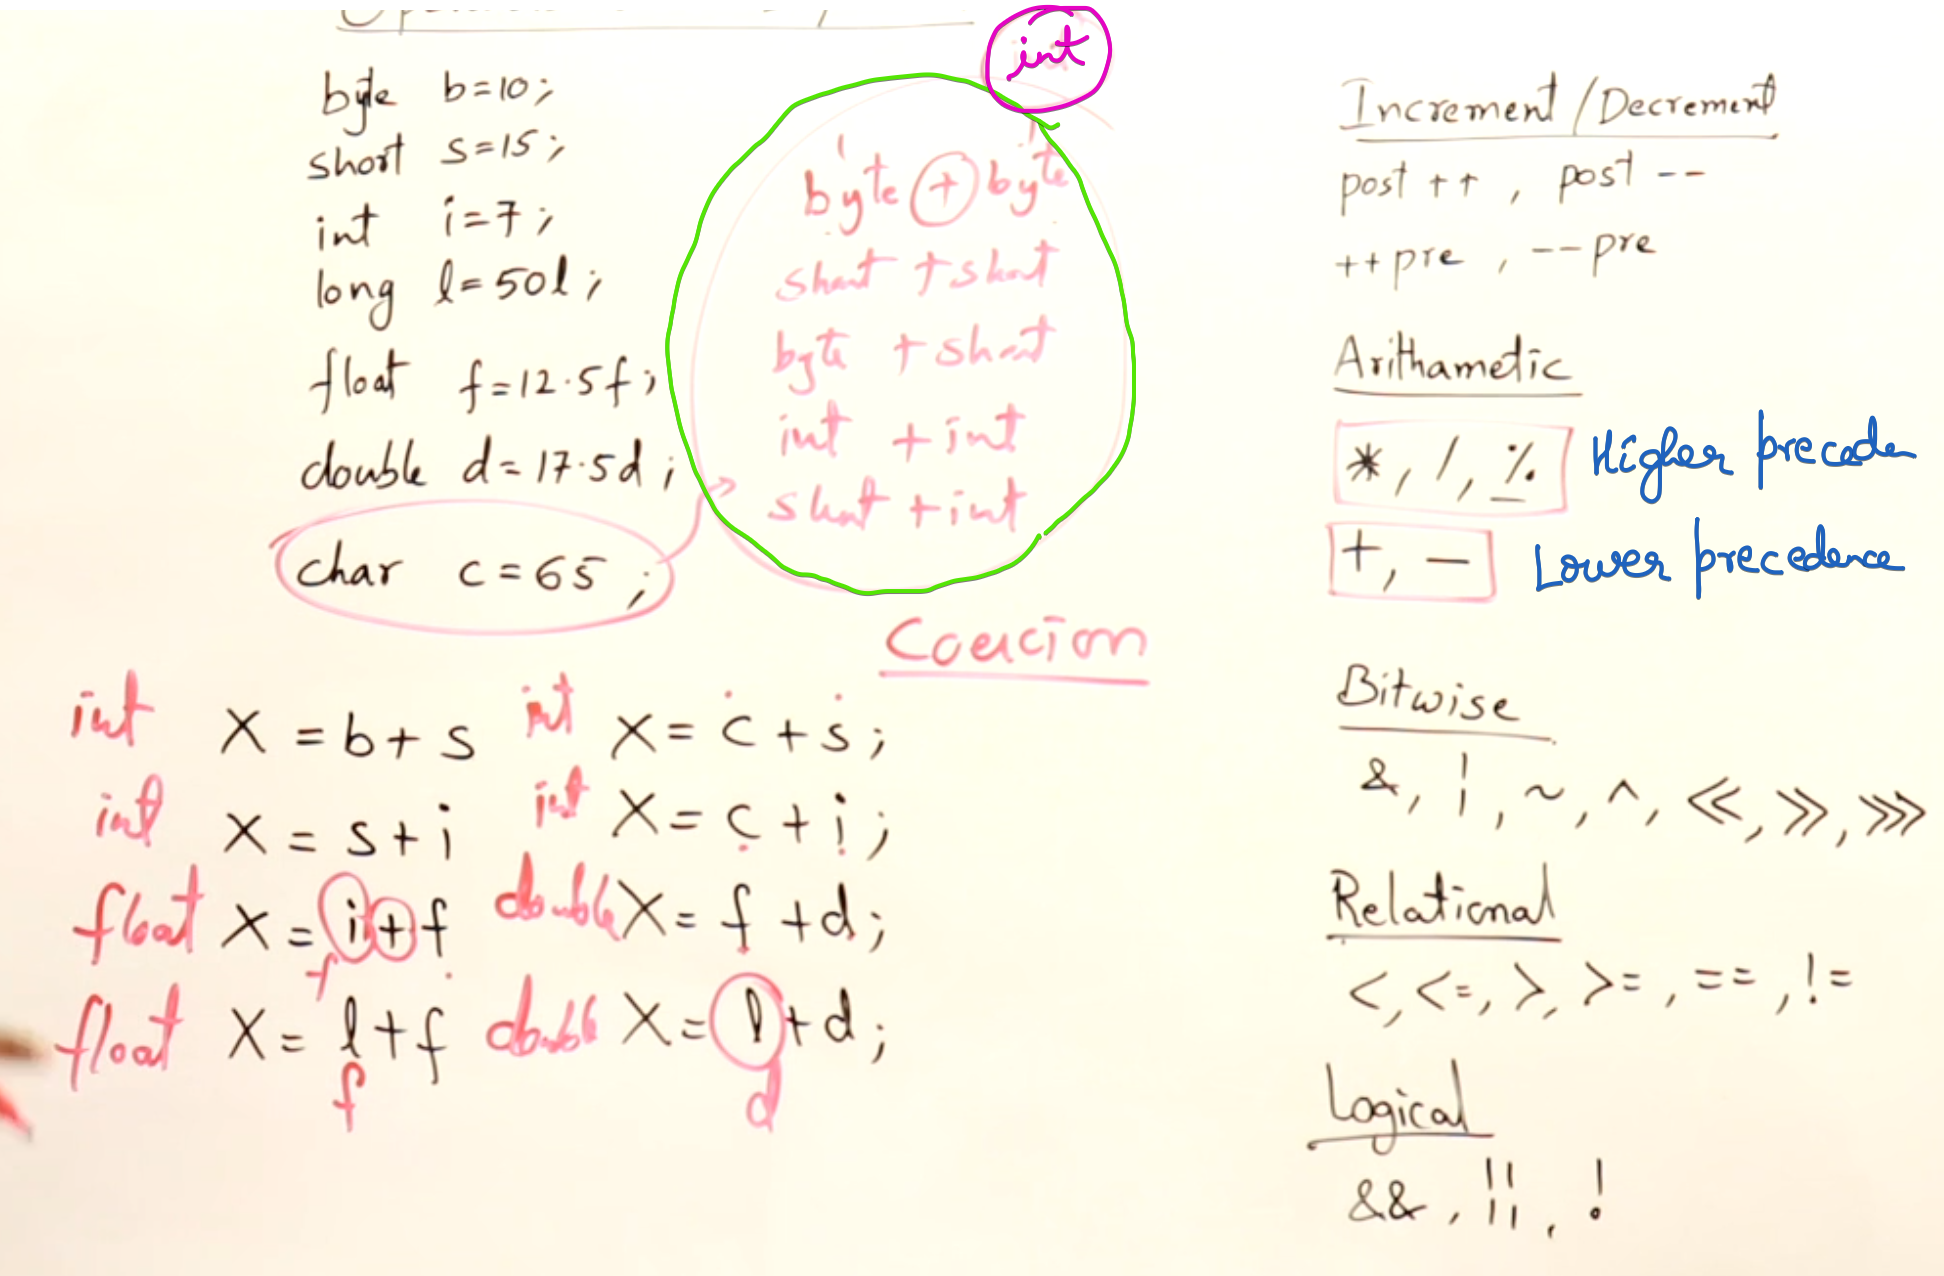 byte b=10;
short s=15;
int i=7;
long l=50l;
float f=12.5f;
double d=17.5d;
char c=65;
int
byte + byte
short + short
byte + short
int + int
short + int
Coercion
int X = b+s
int X = s+i
float X = i+f
f
float X = l+f
f
int X = c+s;
int X = c+i;
double X = f+d;
double X = l+d;
d
Increment/Decrement
post ++, post --
++pre, --pre
Arithametic
*, /, % Higher preceden
+, - Lower precedence
Bitwise
&, |, ~, ^, <<, >>, >>>
Relational
<, <=, >, >=, ==, !=
Logical
&&, ||, !